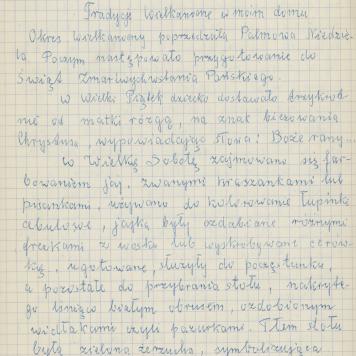 Tradycje wielkanocne w moim domu
Okres wielkanocny poprzedzała Palmowa Niedzie-
la Poczym następowało przygotowanie do
Świąt Zmartwychwstania Pańskiego.
w Wielki Piątek dziecko dostawało trzykrot-
nie od matki rózgą, na znak biczowania
Chrystusa, wypowiadając słowa: Boże rany...
w Wielką Sobotę zajmowano się far-
bowaniem jaj, zwanymi kraszankami lub
pisankami, używano do kolorowania łupinki
cebulowe, jajka były ozdabiane różnymi
freskami z wosku lub wyskrobywane cerów-
ką, ugotowane, służyły do poczęstunku,
a pozostałe do przybrania stołu, nakryte-
go lśniąco białym obrusem, ozdobionym
widłakami czyli pazurkami. Tłem stołu
była zielona rzeżucha, symbolizująca